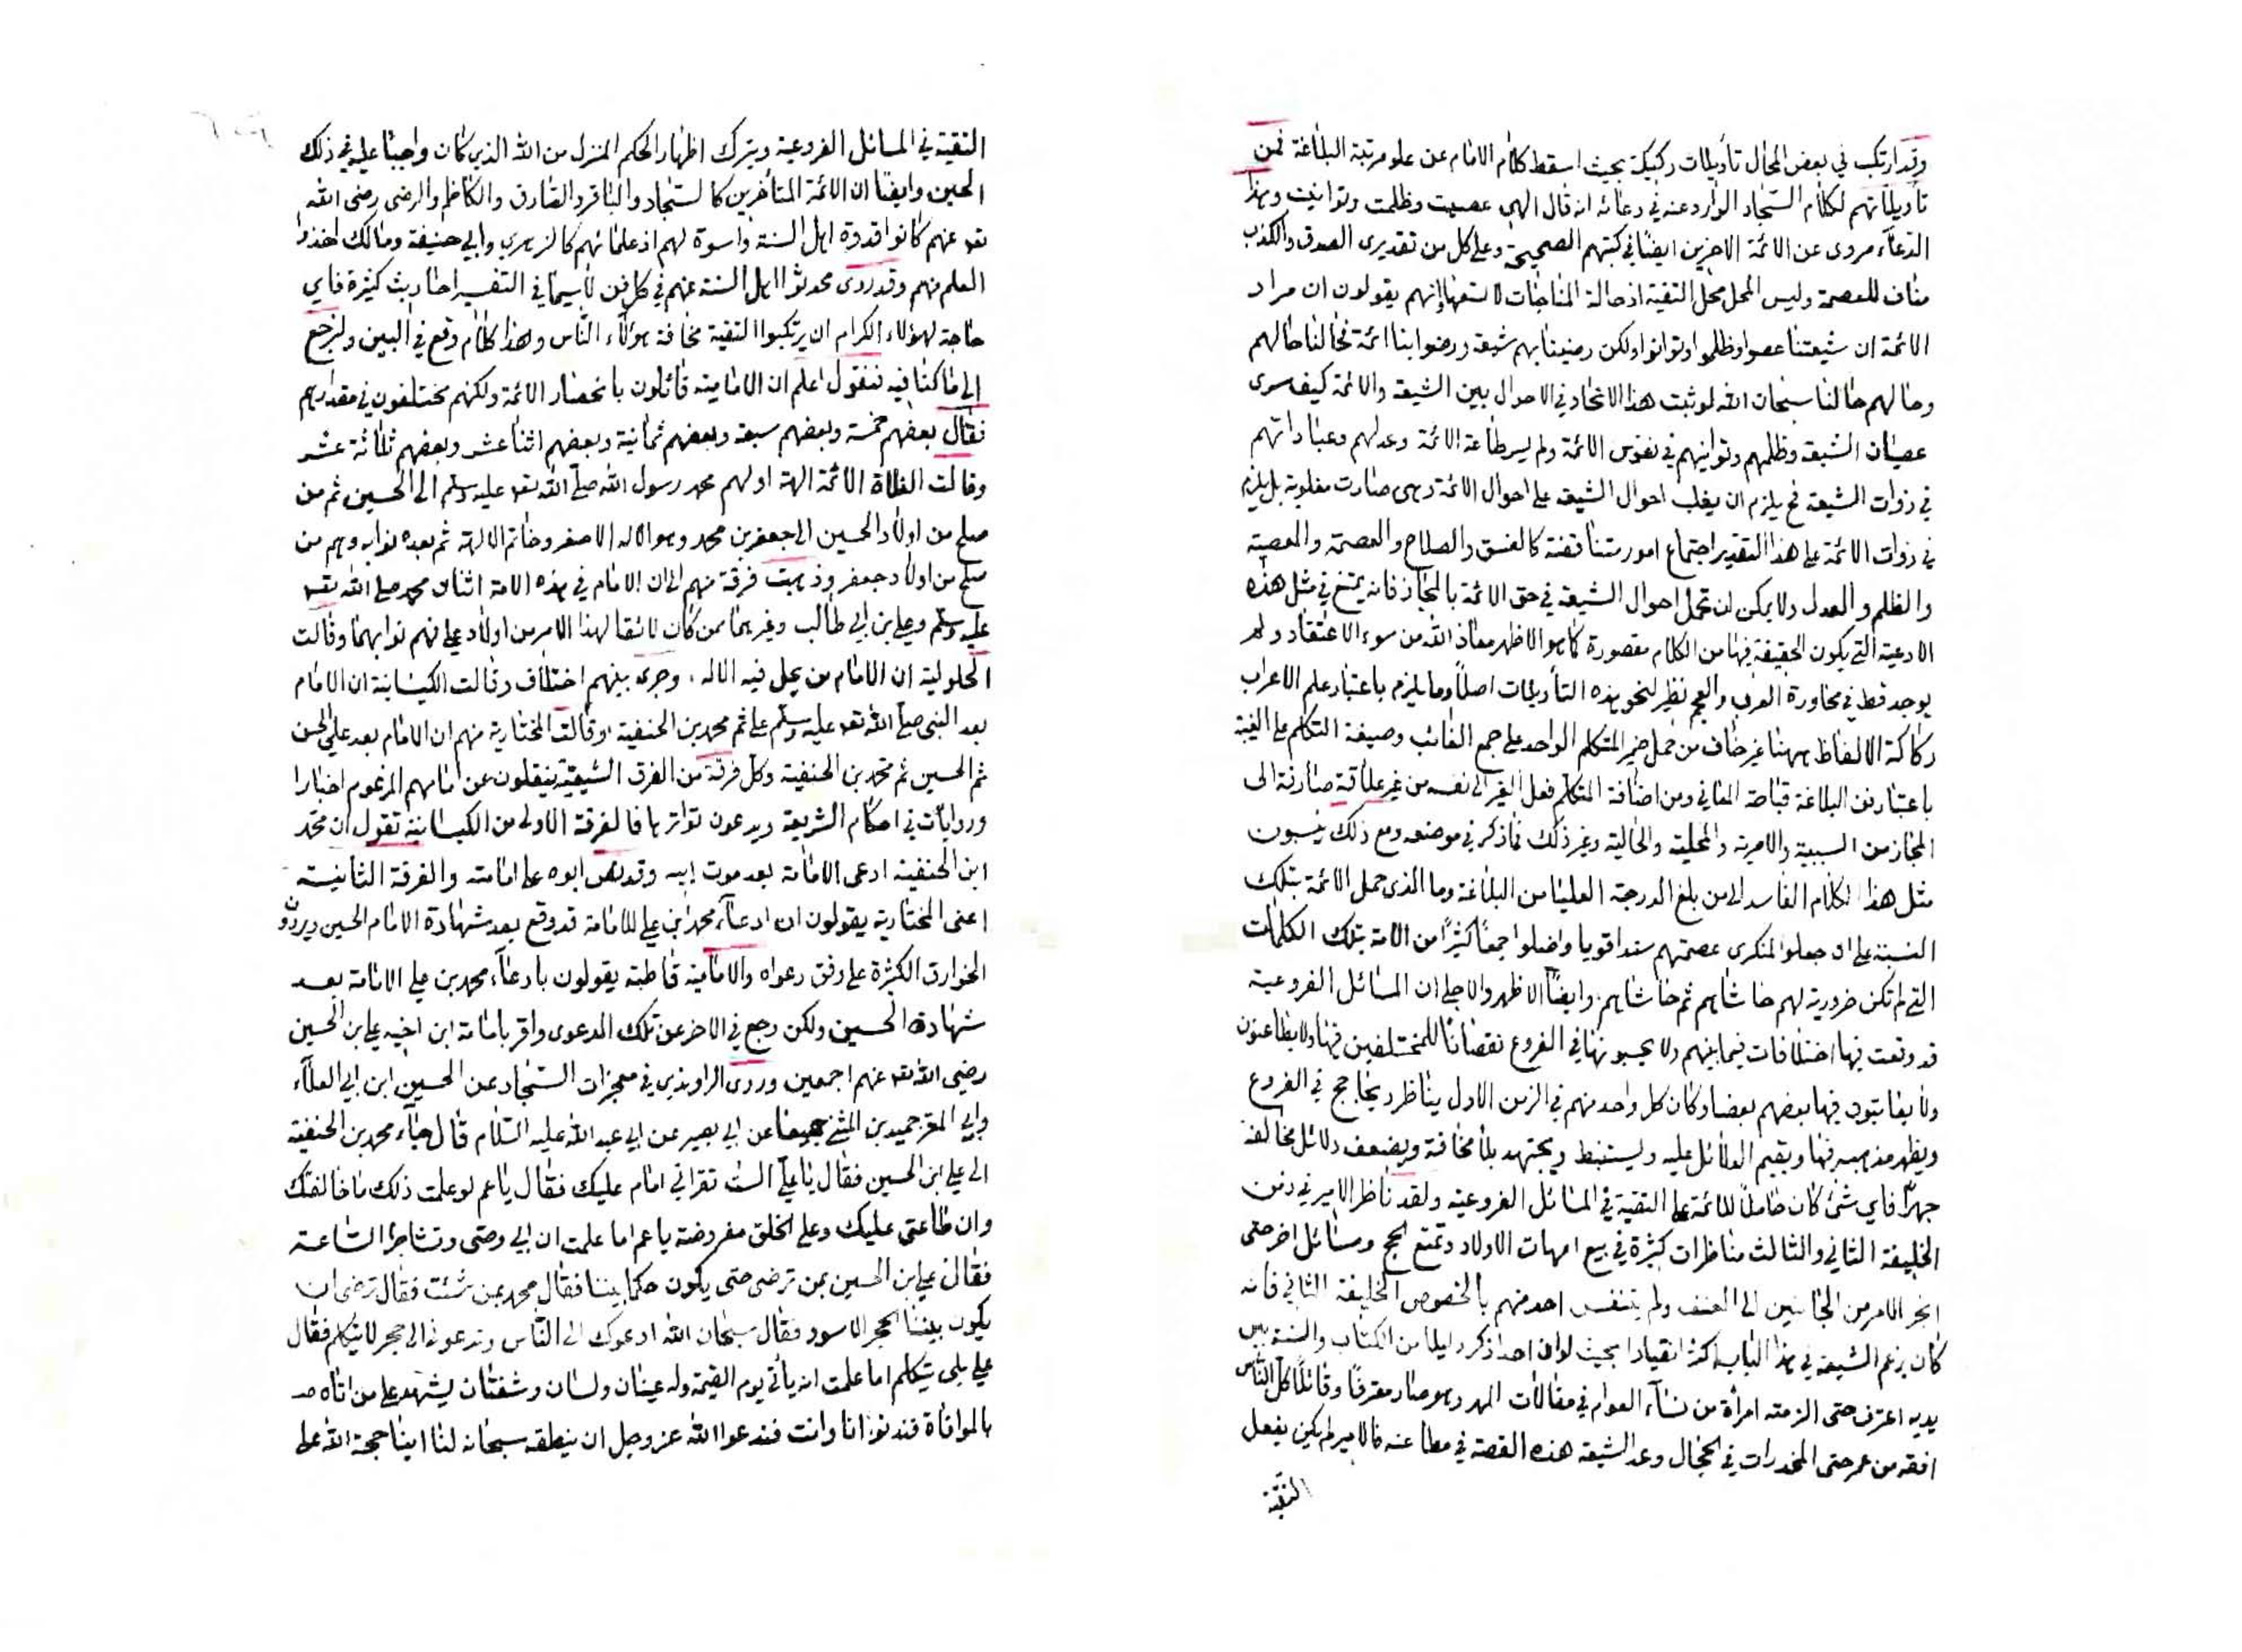 وقد ارتكب في بعض المحال تأويلات ركيكة بحيث اسقط كلام الامام عن علو مرتبة البلاغة فمن
تأويلاتهم لكلام السجاد الوارد عنه في دعائه انه قال الهي عصيت وظلمت وتوانيت وهذا
الدعاء مروى عن الائمة الاخرين ايضا في كتبهم الصحيحة وعلى كل من تقديرى الصدق والكذب
مناف للعصمة وليس المحل محل التقية اذ حالة المناجات لا تسعها انهم يقولون ان مراد
الائمة ان شيعتنا عصوا وظلموا وتوانوا ولكن رضينا بهم شيعة ورضوا بنا ائمة فحالنا حالهم
وحالهم حالنا سبحان الله لو ثبت هذا الاتحاد في الاحوال بين الشيعة والائمة كيف سرى
عصيان الشيعة وظلمهم وتوانيهم في نفوس الائمة ولم يسر طاعة الائمة وعدلهم وعباداتهم
في ذوات الشيعة فح يلزم ان يغلب احوال الشيعة على احوال الائمة وهى صارت مغلوبة بل يلزم
في ذوات الائمة على هذا التقدير اجتماع امور متناقضة كالفسق والصلاح والعصمة والمعصية
والظلم والعدل ولا يمكن ان تحمل احوال الشيعة في حق الائمة بالمجاز فانه يمتنع في مثل هذه
الادعية التي يكون الحقيقة فيها من الكلام مقصورة كما هو الاظهر معاذ الله من سوء الاعتقاد ولم
يوجد قط في محاورة العرب والعجم نظير لنحو هذه التأويلات اصلاً وما يلزم باعتبار علم الاعراب
ركاكة الالفاظ ههنا غير خاف من حمل ضمير المتكلم الواحد على جمع الغائب وصيغة التكلم على الغيبة
باعتبار فن البلاغة قباحة المعاني ومن اضافة المتكلم فعل الغير الى نفسه من غير علاقة صارفة الى
المجاز من السببية والامرية والمحلية والحالية وغير ذلك مما ذكر في موضعه ومع ذلك ينسبون
مثل هذا الكلام الفاسد الى من بلغ الدرجة العليا من البلاغة وما الذى حمل الائمة بتلك
النسبة على ان جعلوا لمنكرى عصمتهم سندا قويا واضلوا جمعاً كثيراً من الامة بتلك الكلمات
التي لم تكن ضرورية لهم حاشاهم ثم حاشاهم وايضاً الاظهر والاجلى ان المسائل الفروعية
قد وقعت فيها اختلافات فيما بينهم ولا يحسبونها في الفروع نقصانا للمختلفين فيها ولا يطاعنون
ولا يعاتبون فيها بعضهم بعضا وكان كل واحد منهم في الزمن الاول يناظر ويحاجج في الفروع
ويظهر مذهبه فيها ويقيم الدلائل عليه ويستنبط ويجتهد بلا مخافة ويضعف دلائل مخالفه
جهراً فاي شئ كان حاملاً للائمة على التقية في المسائل الفروعية ولقد ناظر الامير في زمن
الخليفة الثاني والثالث مناظرات كثيرة في بيع امهات الاولاد وتمتع الحج ومسائل اخر حتى
انجر الامر من الجانبين الى العنف ولم يتنفس احد منهم بالخصوص الخليفة الثاني فانه
كان بزعم الشيعة في هذا الباب اكثر انقيادا بحيث لو ان احدا ذكر دليلا من الكتاب والسنة بين
يديه اعترف حتى الزمته امرأة من نساء العوام في مغالات المهر وهو صار معترفاً وقائلاً كل الناس
افقه من عمر حتى المخدرات في الحجال وعد الشيعة هذه القصة في مطاعنه فالامير لم يكن يفعل
التقية
التقية في المسائل الفروعية ويترك اظهار الحكم المنزل من الله الذي كان واجبا عليه في ذلك
الحين وايضا ان الائمة المتأخرين كالسجاد والباقر والصادق والكاظم والرضى رضى الله
تعو عنهم كانوا قدوة اهل السنة واسوة لهم اذ علمائهم كالزهري وابي حنيفة ومالك اخذوا
العلم منهم وقد روى محدثوا اهل السنة عنهم في كل فن لا سيما في التفسير احاديث كثيرة فاي
حاجة لهؤلاء الكرام ان يرتكبوا التقية مخافة هؤلاء الناس وهذا كلام وقع في البين ولنرجع
الى ما كنا فيه فنقول اعلم ان الامامية قائلون بانحصار الائمة ولكنهم مختلفون في مقدارهم
فقال بعضهم خمسة وبعضهم سبعة وبعضهم ثمانية وبعضهم اثنا عشر وبعضهم ثلاثة عشر
وقالت الغلاة الائمة الهة اولهم محمد رسول الله صلى الله تعو عليه وسلم الى الحسين ثم من
صلح من اولاد الحسين الى جعفر بن محمد وهو الاله الاصغر وخاتم الالهة ثم بعده نوابه وهم من
صلح من اولاد جعفر وذهبت فرقة منهم الى ان الامام في هذه الامة اثنان محمد صلى الله تعو
عليه وسلم وعلي بن ابي طالب وغيرهما ممن كان لائقا لهذا الامر من اولاد علي فهم نوابهما وقالت
الحلولية ان الامام من يحل فيه الاله ، وجرى بينهم اختلاف وقالت الكيسانية ان الامام
بعد النبى صلى الله تعو عليه وسلم علي ثم محمد بن الحنفية وقالت المختارية منهم ان الامام بعد علي الحسن
ثم الحسين ثم محمد بن الحنفية وكل فرقة من الفرق الشيعية ينقلون عن امامهم المزعوم اخبارا
وروايات في احكام الشريعة ويدعون تواترها فالفرقة الاولى من الكيسانية تقول ان محمد
ابن الحنفية ادعى الامامة بعد موت ابيه وقد نص ابوه على امامته والفرقة الثانية
اعنى المختارية يقولون ان ادعاء محمد بن علي للامامة قد وقع بعد شهادة الامام الحسين ويروون
الخوارق الكثيرة على وفق دعواه والامامية قاطبة يقولون بادعاء محمد بن علي الامامة بعد
شهادة الحسين ولكن رجع في الاخر عن تلك الدعوى واقر بامامة ابن اخيه علي ابن الحسين
رضى الله تعو عنهم اجمعين وروى الراوندي في معجزات السجاد عن الحسين ابن ابي العلاء
وابي المعز حميد بن المثنى جميعا عن ابي بصير عن ابي عبد الله عليه السلام قال جاء محمد بن الحنفية
الى علي ابن الحسين فقال يا علي الست تقر اني امام عليك فقال يا عم لو علمت ذلك ما خالفتك
وان طاعتى عليك وعلى الخلق مفروضة يا عم اما علمت ان ابي وصى وتشاجرا الساعة
فقال علي ابن الحسين بمن ترضى حتى يكون حكما بيننا فقال محمد بمن شئت فقال ترضى ان
يكون بيننا الحجر الاسود فقال سبحان الله ادعوك الى الناس وتدعوني الى حجر لا يتكلم فقال
علي بلى يتكلم اما علمت انه يأتي يوم القيمة وله عينان ولسان وشفتان يشهد على من اتاه
بالموافاة فندنو انا وانت فندعوا الله عز وجل ان ينطقه سبحانه لنا اينا حجة الله على